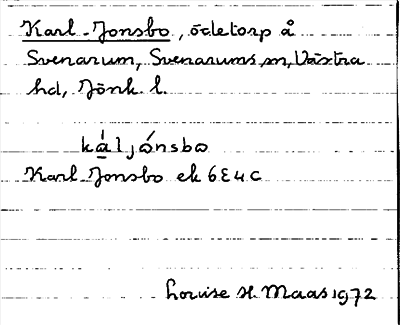 Karl-Jonsbo, ödetorp å
Svenarum, Svenarums sn, Västra
hd, Jönk. l.
káljónsbo
Karl-Jonsbo ek 6E4c
Louise H. Maas 1972